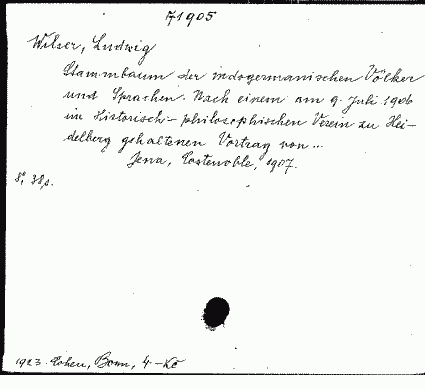 71905
Wilser, Ludwig
Stammbaum der indogermanischen Völker
und Sprachen. Nach einem am 9. Juli 1906
im Historisch-philosophischen Verein zu Hei-
delberg gehaltenen Vortrag von ...
Jena, Costenoble, 1907.
8°, 38 s.
1923. Cohen, Bonn, 4.- Kč